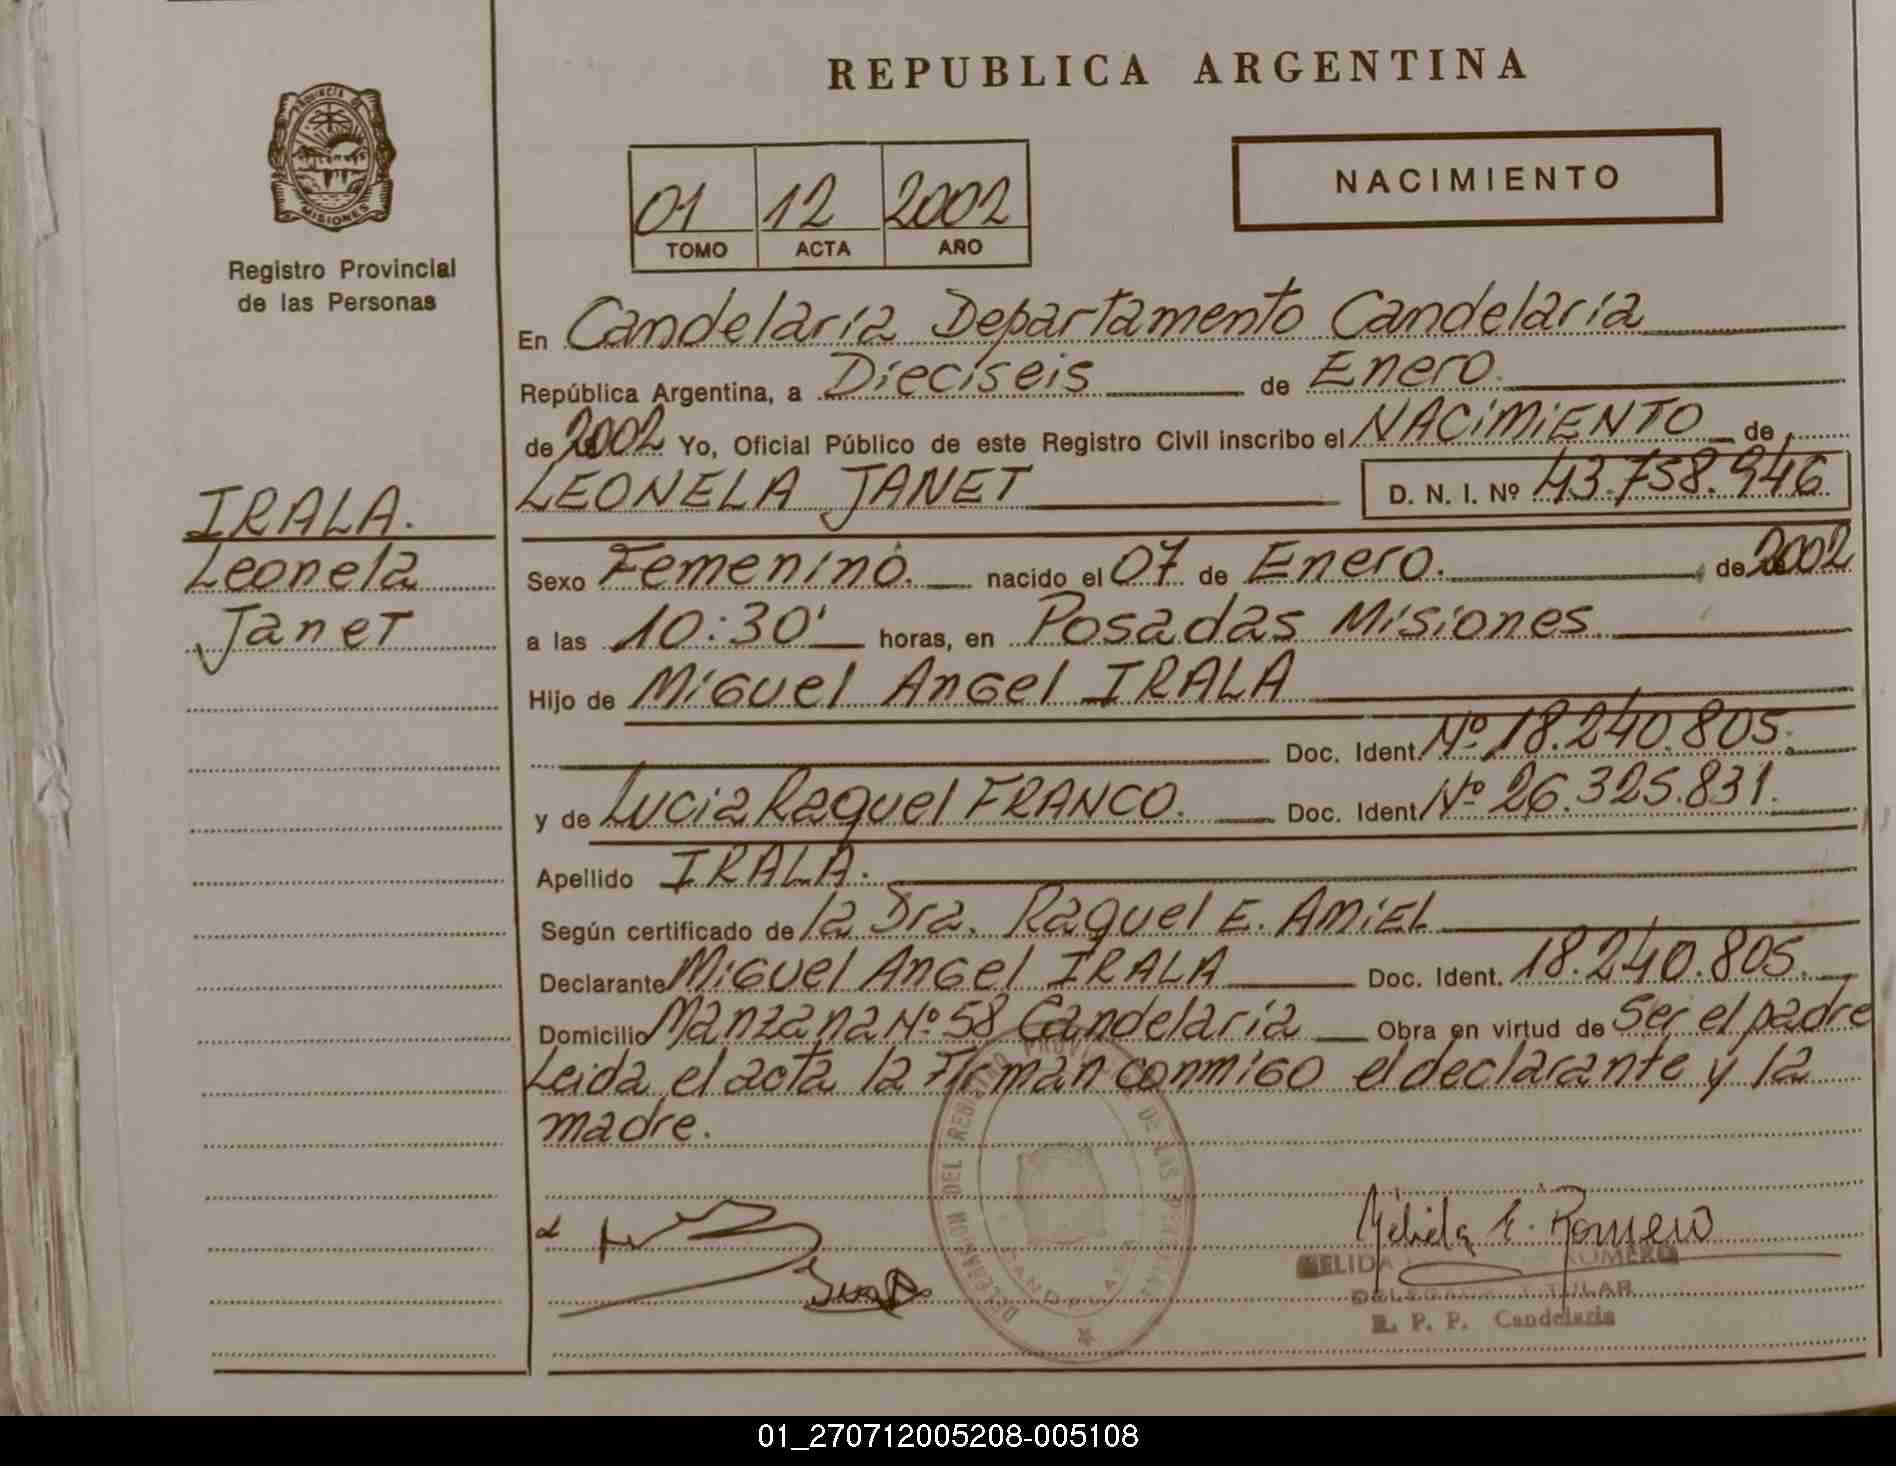 REPUBLICA ARGENTINA
PROVINCIA DE
MISIONES
Registro Provincial
de las Personas
01 12 2002
TOMO ACTA AÑO
NACIMIENTO
En Candelaria Departamento Candelaria
República Argentina, a Dieciseis de Enero.
de 2002 Yo, Oficial Público de este Registro Civil inscribo el NACIMIENTO de
LEONELA JANET D. N. I. Nº 43.758.946
IRALA.
Leonela
Janet
Sexo Femenino. nacido el 07 de Enero. de 2002
a las 10:30' horas, en Posadas Misiones.
Hijo de Miguel Angel IRALA
Doc. Ident. Nº 18.240.805.
y de Lucia Raquel FRANCO. Doc. Ident. Nº 26.325.831.
Apellido IRALA.
Según certificado de la Dra. Raquel E. AMIEL
Declarante Miguel Angel IRALA Doc. Ident. 18.240.805.
Domicilio Manzana Nº 58 Candelaria Obra en virtud de Ser el padre
Leida el acta la Firman conmigo el declarante y la
madre.
DELEGACION DEL REGISTRO PROVINCIAL DE LAS PERSONAS
Nelida E. Romero
NELIDA ROMERO
DELEGADA TITULAR
R. P. P. Candelaria
01_270712005208-005108